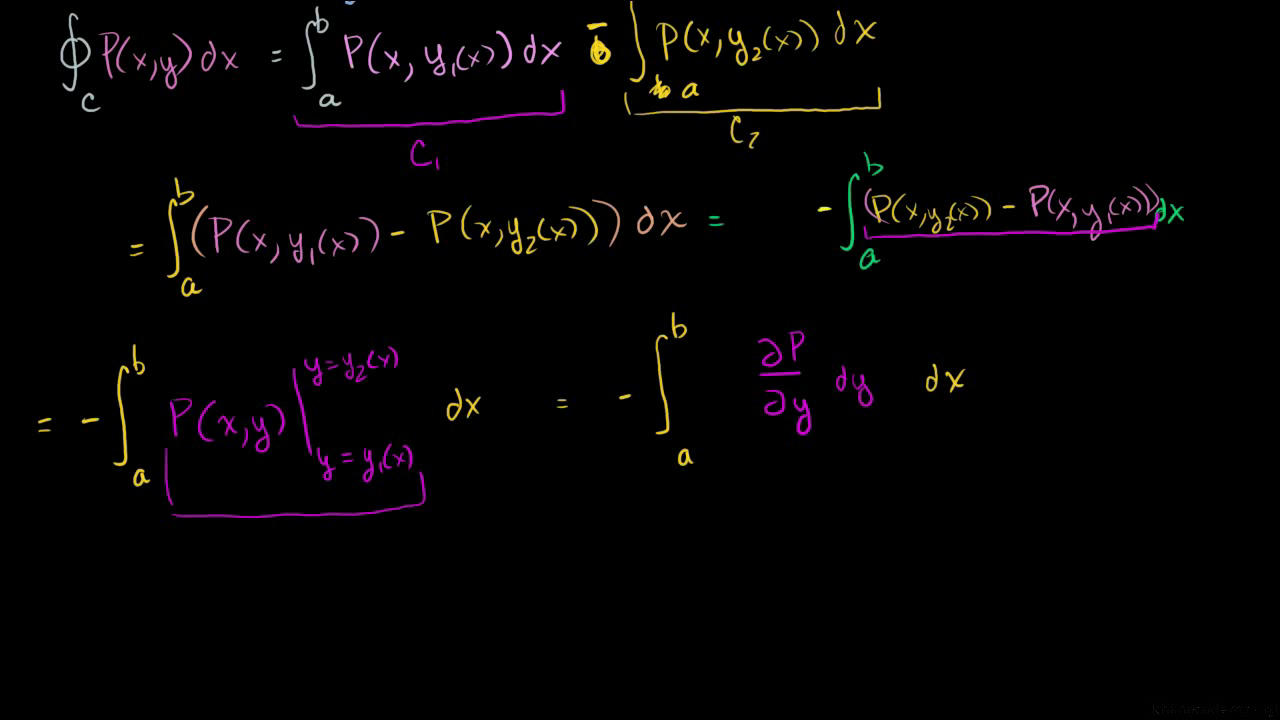 ∮_C P(x,y) dx = ∫_a^b P(x, y₁(x)) dx - ∫_a P(x, y₂(x)) dx
C₁ C₂
= ∫_a^b (P(x, y₁(x)) - P(x, y₂(x))) dx = - ∫_a^b (P(x,y₂(x)) - P(x, y₁(x))) dx
= - ∫_a^b P(x,y) |_{y = y₁(x)}^{y = y₂(x)} dx = - ∫_a^b ∂P/∂y dy dx